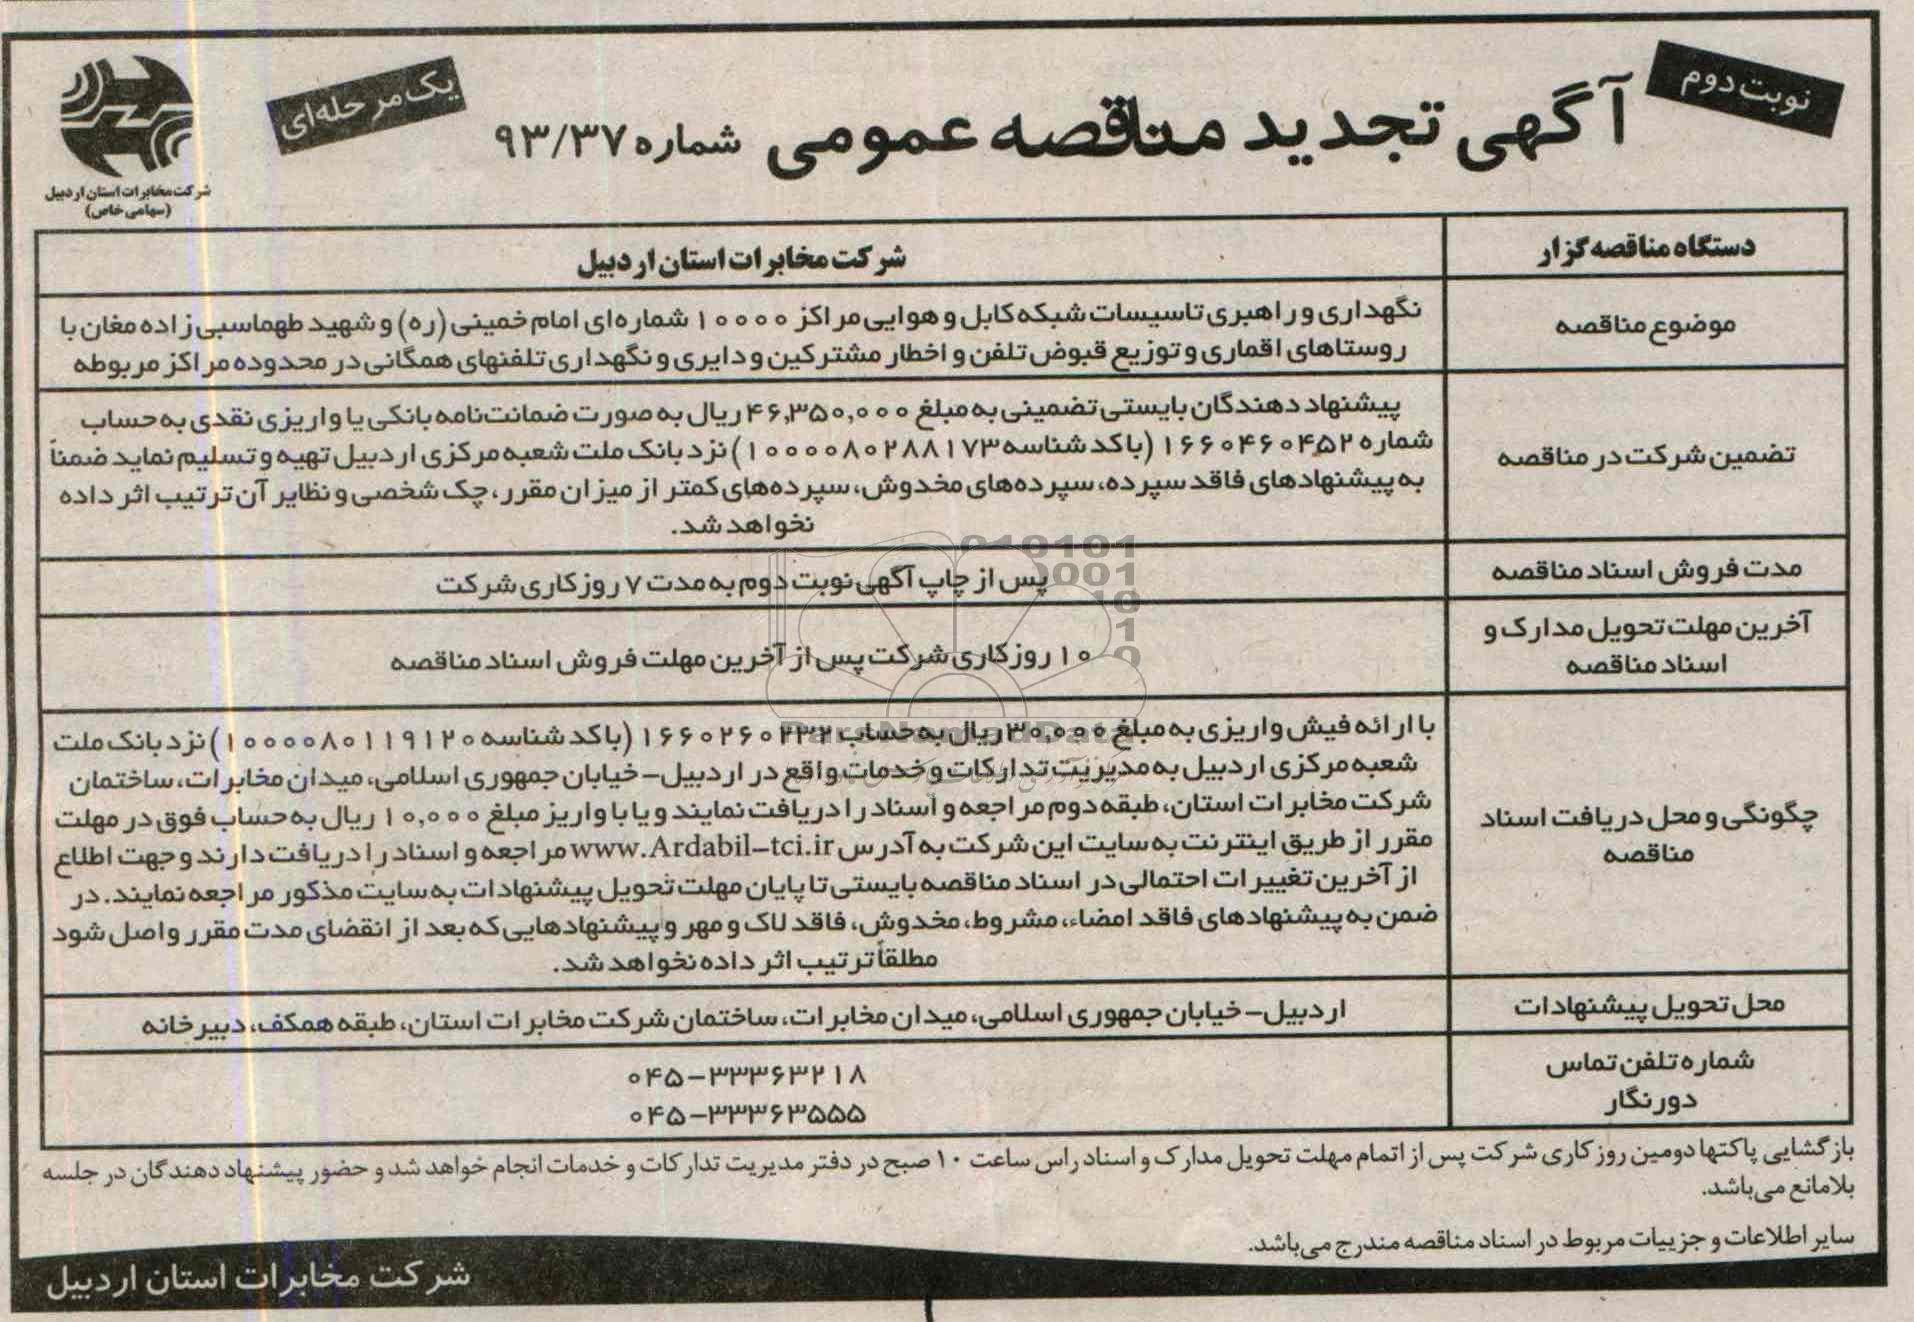 نوبت دوم
آگهی تجدید مناقصه عمومی شماره ۹۳/۳۷
یک مرحله‌ای
شرکت مخابرات استان اردبیل
(سهامی خاص)
دستگاه مناقصه گزار
شرکت مخابرات استان اردبیل
موضوع مناقصه
نگهداری و راهبری تاسیسات شبکه کابل و هوایی مراکز ۱۰۰۰۰ شماره‌ای امام خمینی (ره) و شهید طهماسبی زاده مغان با
روستاهای اقماری و توزیع قبوض تلفن و اخطار مشترکین و دایری و نگهداری تلفنهای همگانی در محدوده مراکز مربوطه
تضمین شرکت در مناقصه
پیشنهاد دهندگان بایستی تضمینی به مبلغ ۴۶,۳۵۰,۰۰۰ ریال به صورت ضمانت‌نامه بانکی یا واریزی نقدی به حساب
شماره ۱۶۶۰۴۶۰۴۵۲ (با کد شناسه ۱۰۰۰۰۸۰۲۸۸۱۷۳) نزد بانک ملت شعبه مرکزی اردبیل تهیه و تسلیم نماید ضمناً
به پیشنهادهای فاقد سپرده، سپرده‌های مخدوش، سپرده‌های کمتر از میزان مقرر، چک شخصی و نظایر آن ترتیب اثر داده
نخواهد شد.
مدت فروش اسناد مناقصه
پس از چاپ آگهی نوبت دوم به مدت ۷ روز کاری شرکت
آخرین مهلت تحویل مدارک و
اسناد مناقصه
۱۰ روز کاری شرکت پس از آخرین مهلت فروش اسناد مناقصه
چگونگی و محل دریافت اسناد
مناقصه
با ارائه فیش واریزی به مبلغ ۳۰,۰۰۰ ریال به حساب ۱۶۶۰۲۶۰۲۳۲ (با کد شناسه ۱۰۰۰۰۸۰۱۱۹۱۲۰) نزد بانک ملت
شعبه مرکزی اردبیل به مدیریت تدارکات و خدمات واقع در اردبیل- خیابان جمهوری اسلامی، میدان مخابرات، ساختمان
شرکت مخابرات استان، طبقه دوم مراجعه و اسناد را دریافت نمایند و یا با واریز مبلغ ۱۰,۰۰۰ ریال به حساب فوق در مهلت
مقرر از طریق اینترنت به سایت این شرکت به آدرس www.Ardabil-tci.ir مراجعه و اسناد را دریافت دارند و جهت اطلاع
از آخرین تغییرات احتمالی در اسناد مناقصه بایستی تا پایان مهلت تحویل پیشنهادات به سایت مذکور مراجعه نمایند. در
ضمن به پیشنهادهای فاقد امضاء، مشروط، مخدوش، فاقد لاک و مهر و پیشنهادهایی که بعد از انقضای مدت مقرر واصل شود
مطلقاً ترتیب اثر داده نخواهد شد.
محل تحویل پیشنهادات
اردبیل- خیابان جمهوری اسلامی، میدان مخابرات، ساختمان شرکت مخابرات استان، طبقه همکف، دبیرخانه
شماره تلفن تماس
دورنگار
۰۴۵-۳۳۳۶۳۲۱۸
۰۴۵-۳۳۳۶۳۵۵۵
بازگشایی پاکتها دومین روز کاری شرکت پس از اتمام مهلت تحویل مدارک و اسناد راس ساعت ۱۰ صبح در دفتر مدیریت تدارکات و خدمات انجام خواهد شد و حضور پیشنهاد دهندگان در جلسه
بلامانع می‌باشد.
سایر اطلاعات و جزییات مربوط در اسناد مناقصه مندرج می‌باشد.
شرکت مخابرات استان اردبیل